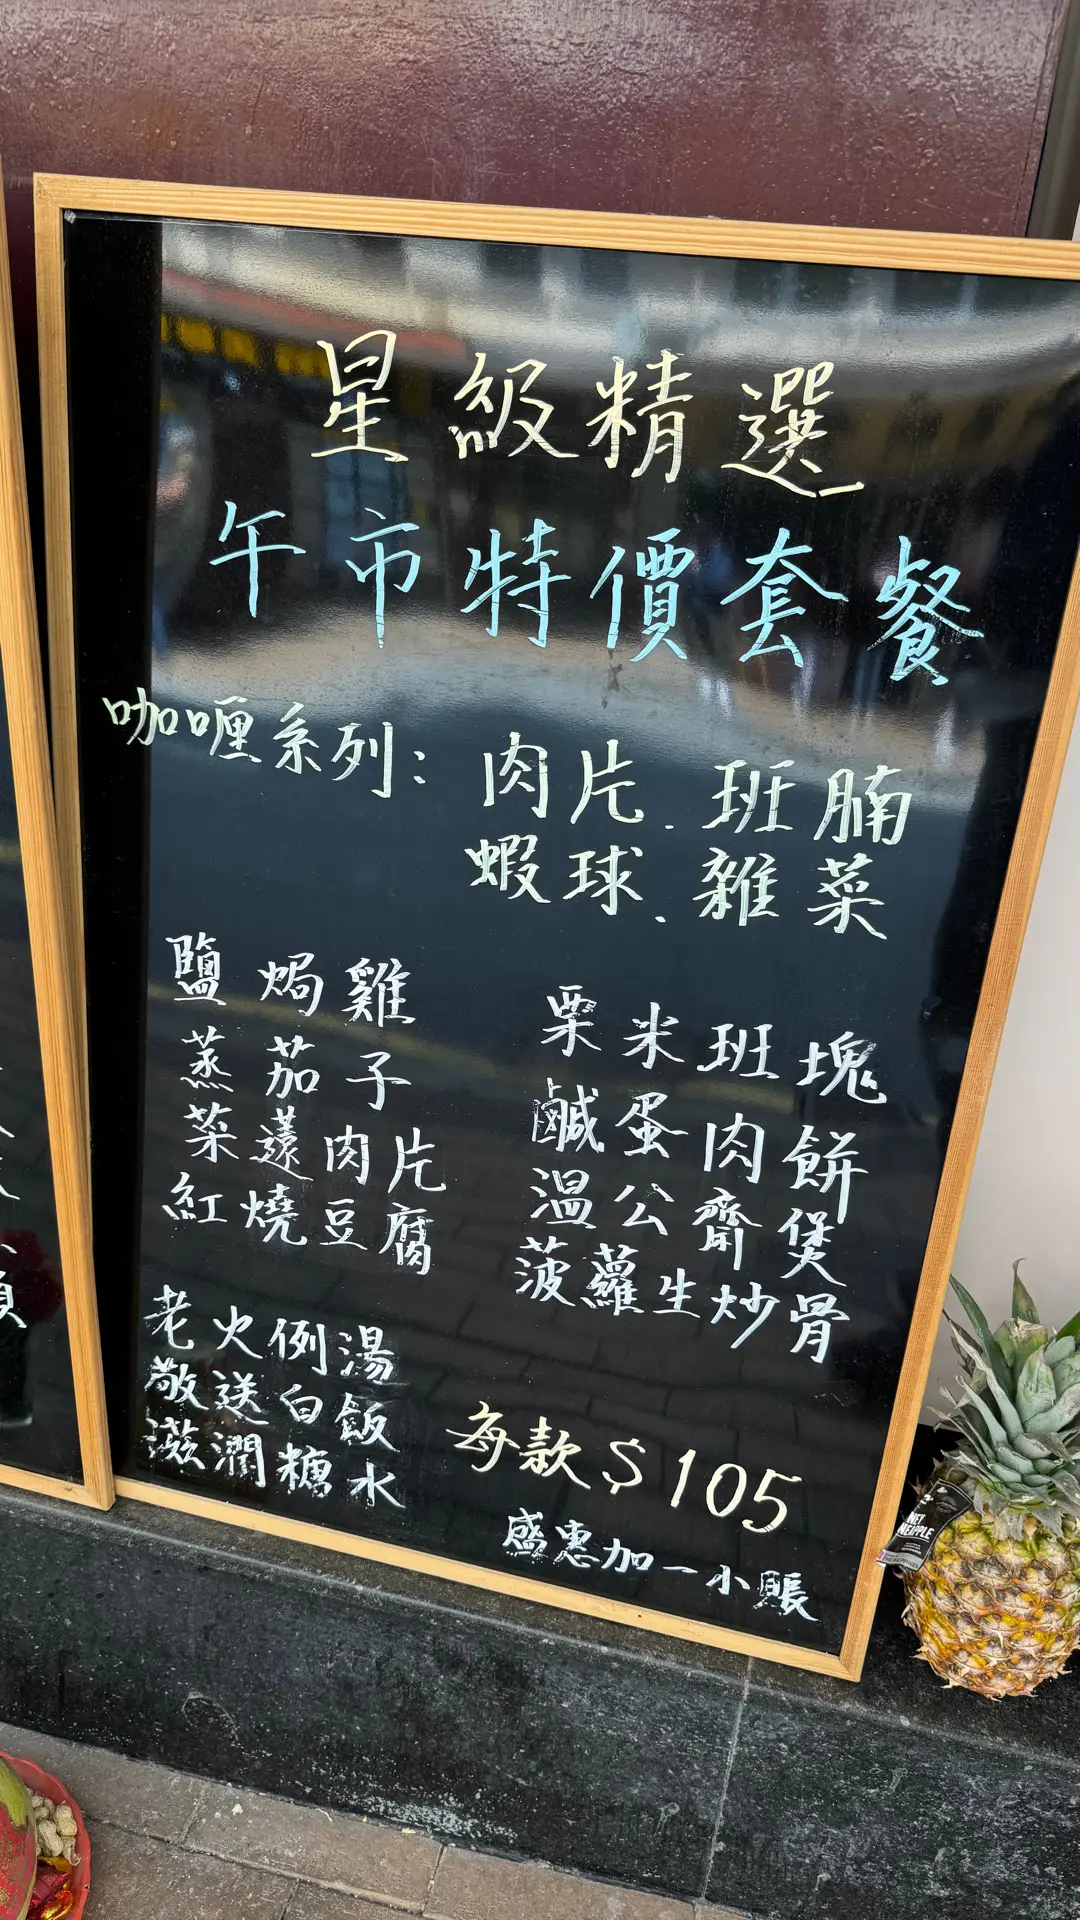 星級精選
午市特價套餐
咖喱系列：肉片．班腩
蝦球．雜菜
鹽焗雞
蒸茄子
菜薳肉片
紅燒豆腐
粟米班塊
鹹蛋肉餅
溫公齋煲
菠蘿生炒骨
老火例湯
敬送白飯
滋潤糖水
每款$105
盛惠加一小賬